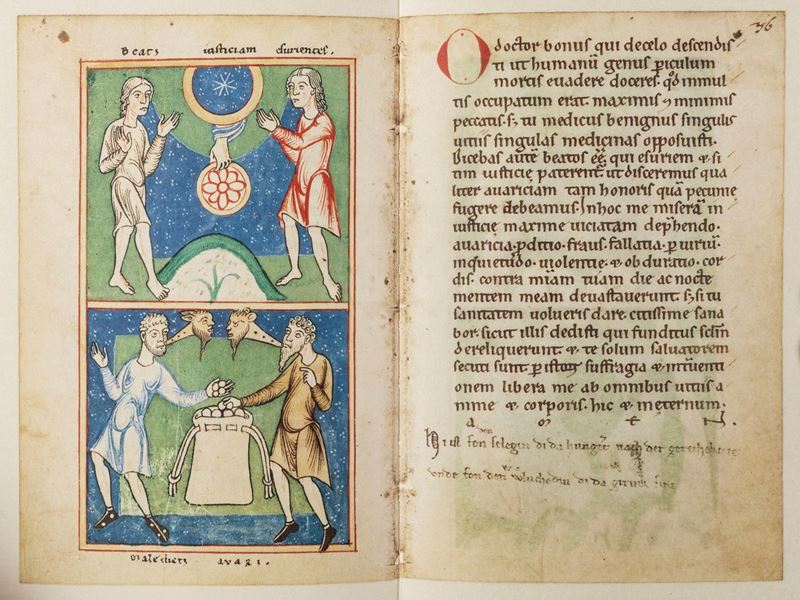 Beati iusticiam esurientes.
Maledicti avari.
36
O doctor bonus qui de celo descendis
ti ut humanū genus piculum
mortis euadere doceres. qđ in mul
tis occupatum erat maximis & minimis
peccatis. sʒ tu medicus benignus singulis
uitiis singulas medicinas opposuisti.
Dicebas autē beatos eē qui esuriem & si
tim iusticię paterent̄. ut disceremus qua
liter auariciam tam honoris quā pecunie
fugere debeamus. In hoc me miserā in
iusticię maxime uiciatam dep̄hendo.
auaricia. pditio. fraus. fallatia. p
inquietudo. uiolentię. & obduratio. cor
dis. contra mīam tuam die ac nocte
mentem meam deuastauerunt. sʒ si tu
sanitatem uolueris dare. citissime sana
bor. sicut illis dedisti qui funditus sc̄lm
dereliquerunt & te solum saluatorem
secuti sunt. p istoꝝ suffragia & int̄uenti
onem libera me ab omnibus uitiis a
nime & corporis. hic & inęternum.
A M E N.
Hi ist fon selegin di da hunger nach der
unde fon den di da sint